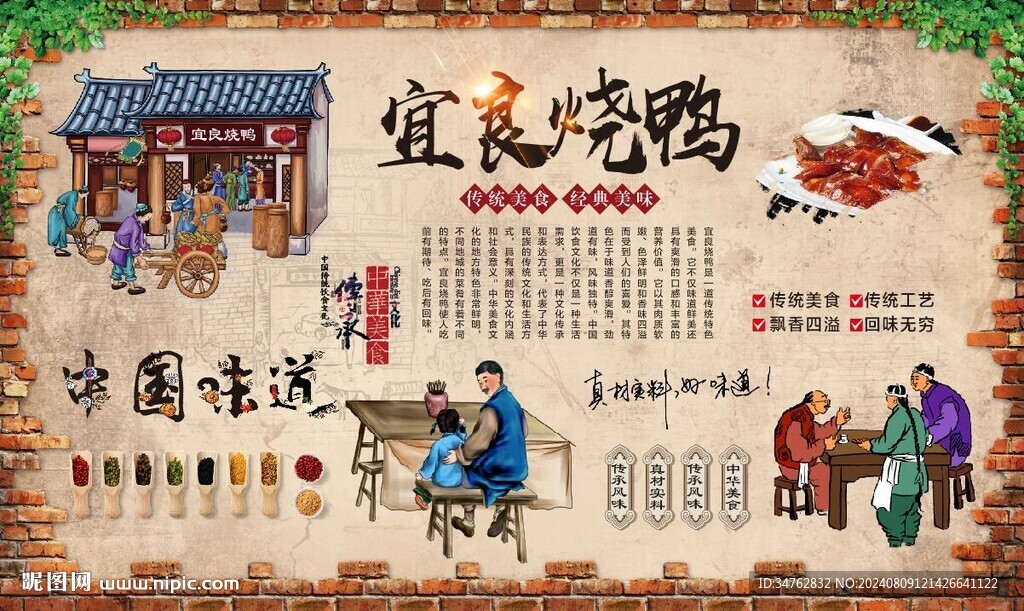 宜良烧鸭
宜良烧鸭
传统美食 经典美味
宜良烧鸭是一道传统特色
美食。它不仅味道鲜美还
具有爽滑的口感和丰富的
营养价值。它以其肉质软
嫩、色泽鲜明和香味四溢
而受到人们的喜爱。其特
色在于味道香醇爽滑，劲
道有味，风味独特。中国
饮食文化不仅是一种生活
需求，更是一种文化传承
和表达方式，代表了中华
民族的传统文化和生活方
式，具有深刻的文化内涵
和社会意义。中华美食文
化的地方特色非常鲜明，
不同地域的菜肴有着不同
的特点。宜良烧鸭使人吃
前有期待、吃后有回味。
中华美食
文化
传承
中国传统饮食文化
传统美食 传统工艺
飘香四溢 回味无穷
中国味道
真材实料,好味道！
传承风味
真材实料
传承风味
中华美食
昵图网 www.nipic.com
ID:34762832 NO:20240809121426641122